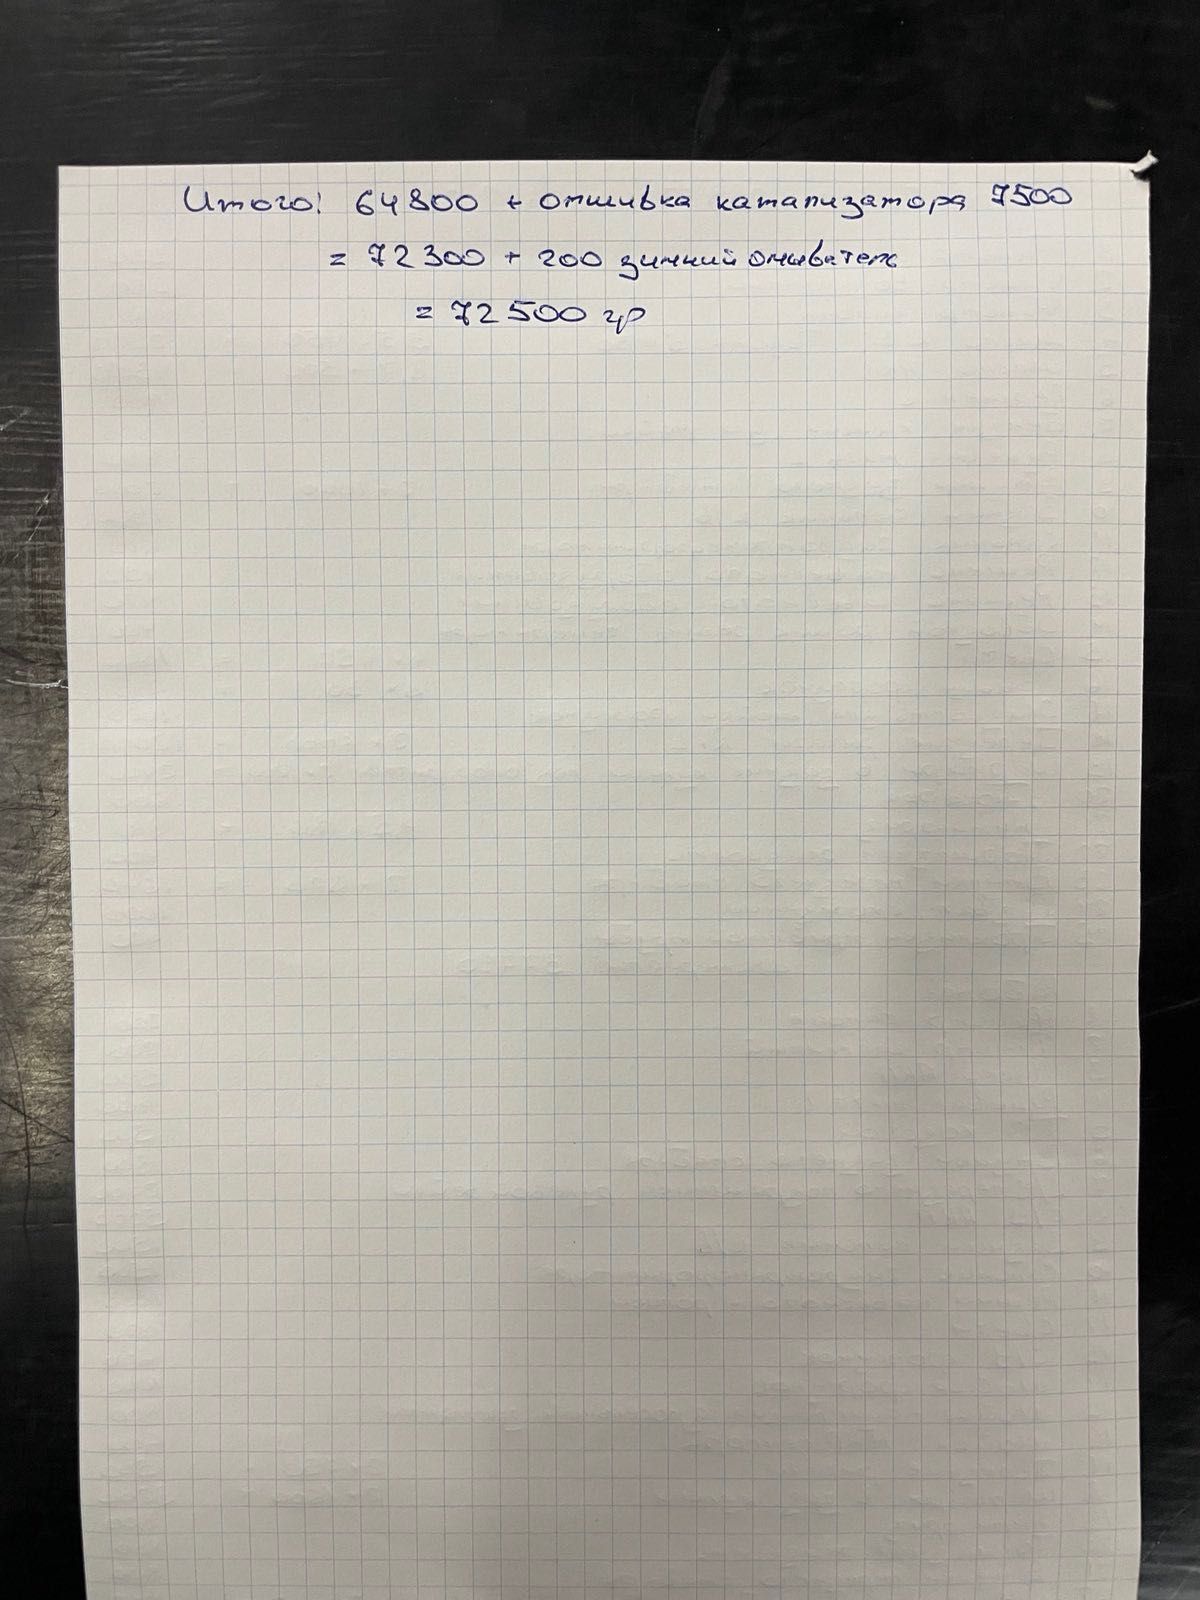 Итого: 64800 + отшивка катализатора 7500
= 72300 + 200 зимний омыватель
= 72500 гр